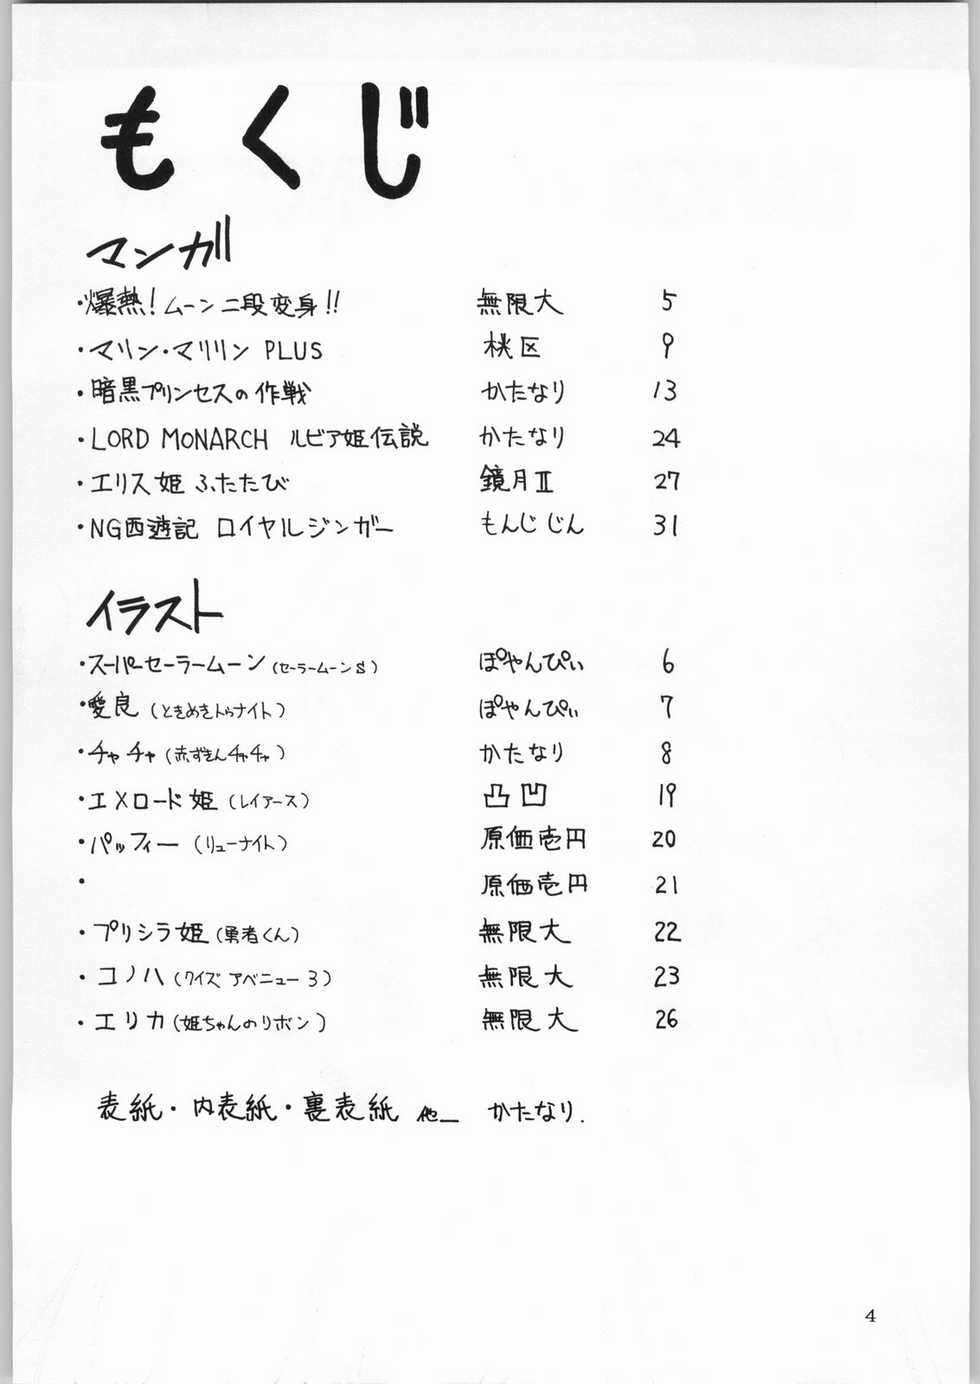 もくじ
マンガ
・爆熱！ムーン二段変身!! 無限大 5
・マリン・マリリン PLUS 桃区 9
・暗黒プリンセスの作戦 かたなり 13
・LORD MONARCH ルビア姫伝説 かたなり 24
・エリス姫ふたたび 鏡月Ⅱ 27
・NG西遊記 ロイヤルジンガー もんじじん 31
イラスト
・スーパーセーラームーン(セーラームーンS) ぽやんぴぃ 6
・愛良(ときめきトゥナイト) ぽやんぴぃ 7
・チャチャ(赤ずきんチャチャ) かたなり 8
・エメロード姫(レイアース) 凸凹 19
・パッフィー(リューナイト) 原価壱円 20
・ 原価壱円 21
・プリシラ姫(勇者くん) 無限大 22
・コノハ(クイズアベニュー3) 無限大 23
・エリカ(姫ちゃんのリボン) 無限大 26
表紙・内表紙・裏表紙 他 かたなり.
4